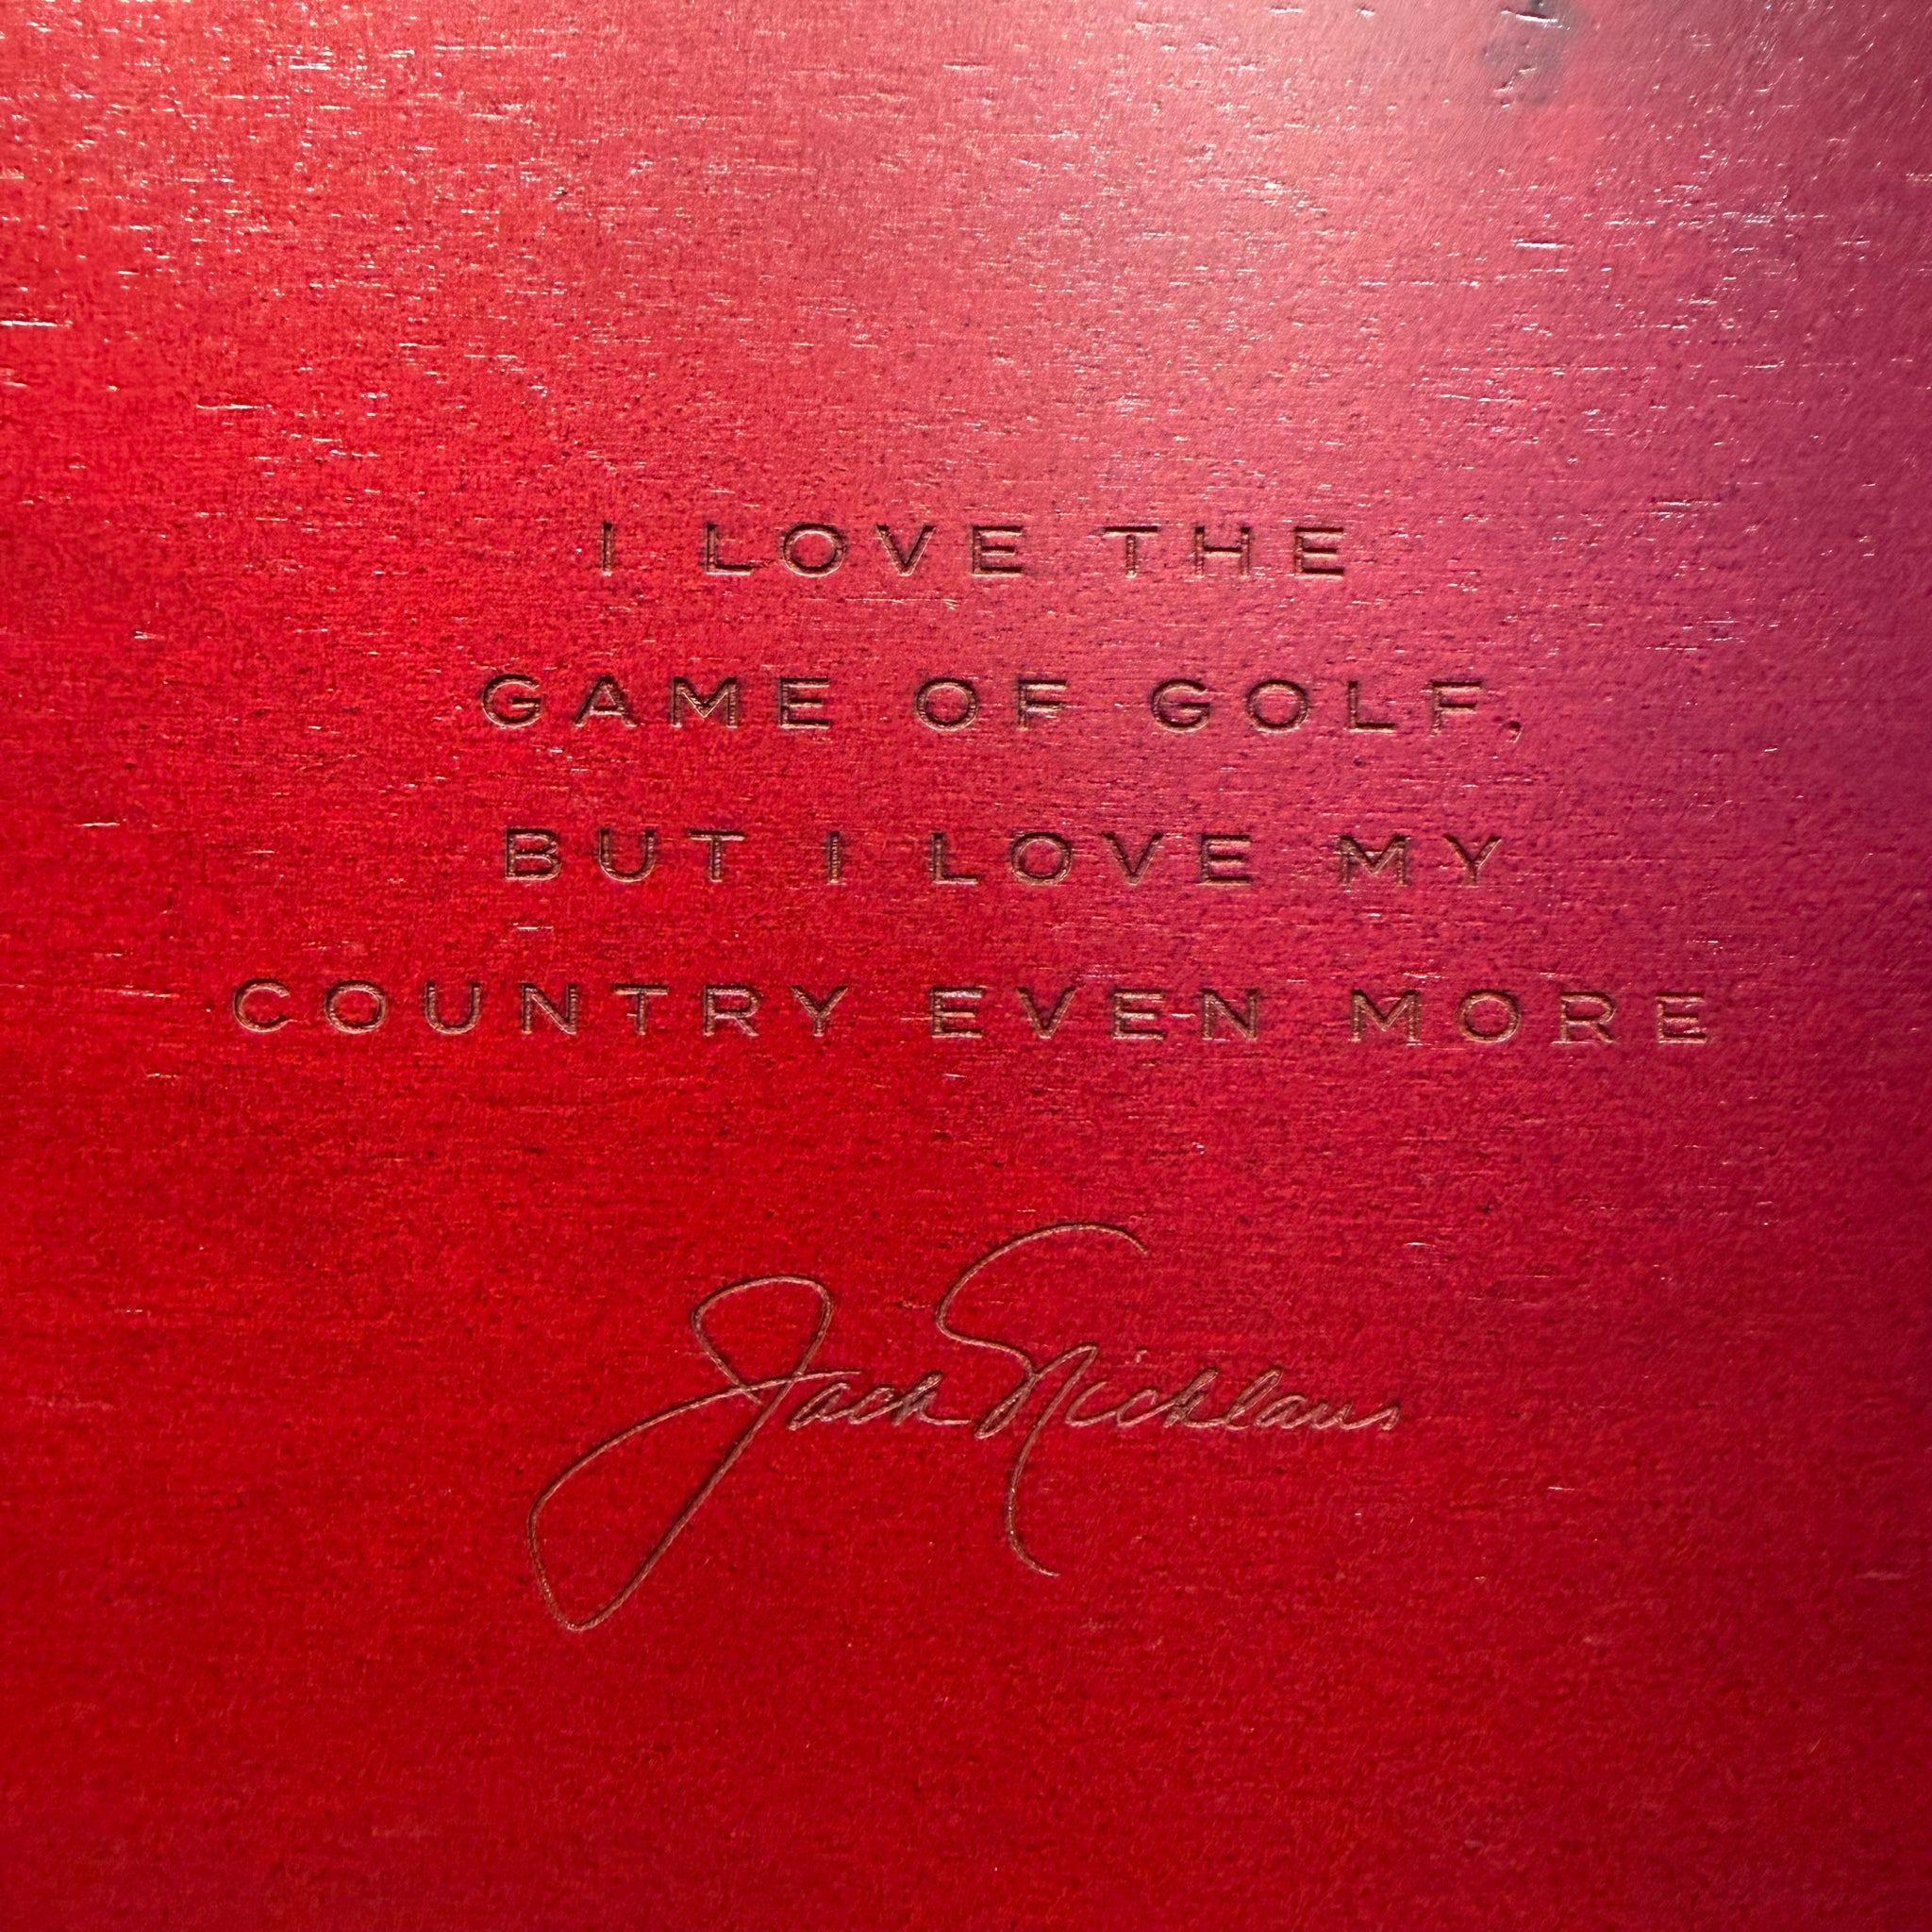 I LOVE THE
GAME OF GOLF,
BUT I LOVE MY
COUNTRY EVEN MORE
Jack Nicklaus